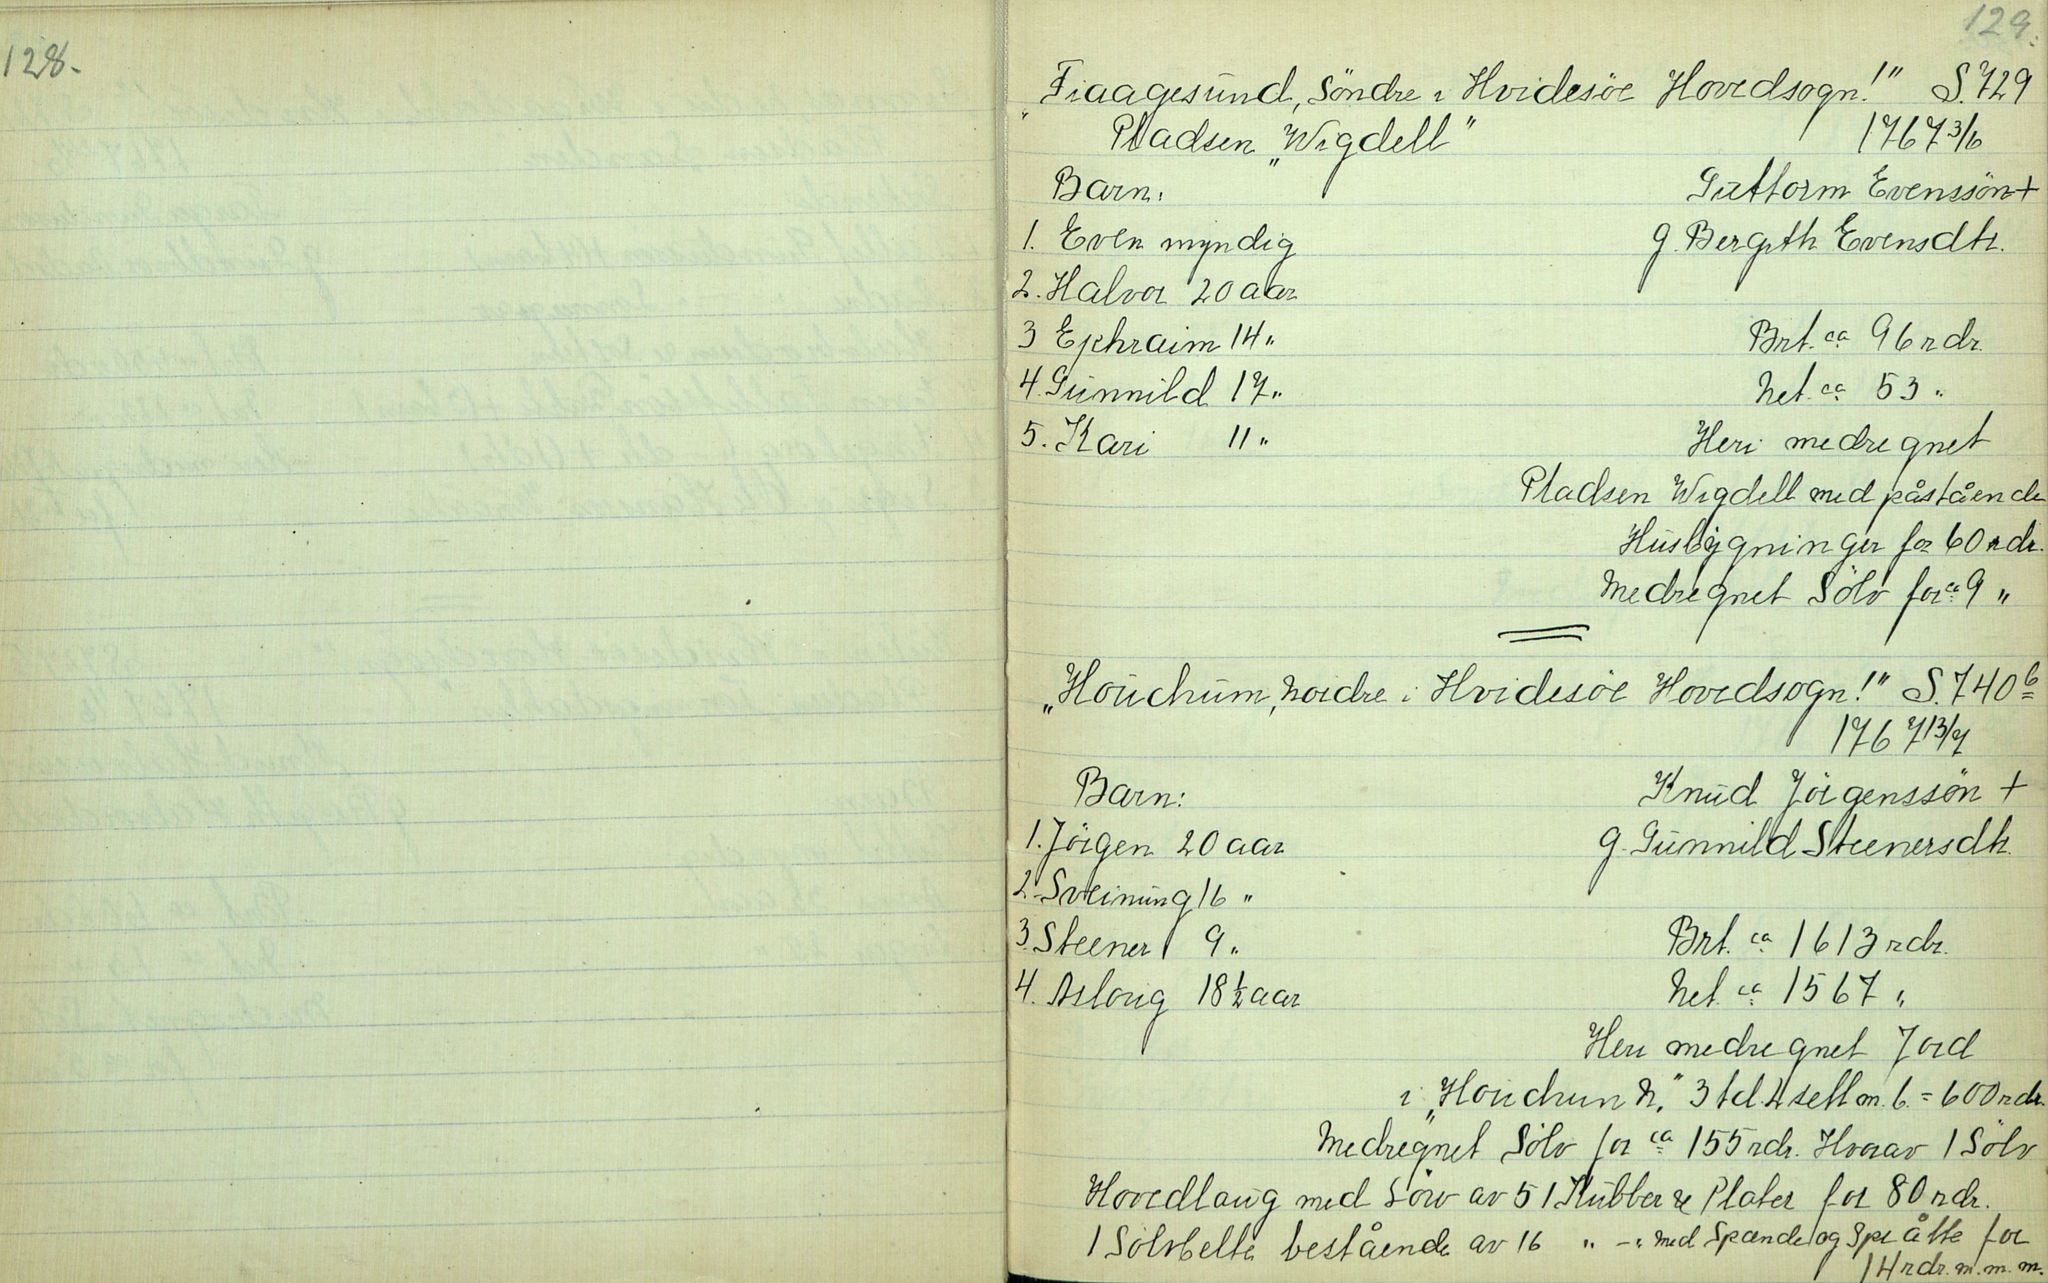 128.
129.
"Fiaagesund, Söndre i Hvidesöe Hovedsogn!" S. 729
Pladsen "Wigdell" 1767 3/6
Barn: Guttorm Evenssön +
1. Even myndig g. Bergith Evensdtr.
2. Halvor 20 aar
3 Ephraim 14 " Brt. ca 96 rdr.
4. Gunnild 17 " Net. ca 53 "
5. Kari 11 " Heri medregnet
Pladsen Wigdell med påstående
Husbygninger for 60 rdr.
Medregnet Sölv for ca 9 "
"Houchum, Nordre i Hvidesöe Hovedsogn!" S. 740 b
1767 13/7
Barn: Knud Jörgenssön +
1. Jörgen 20 aar g. Gunnild Steenersdtr.
2. Sveinung 16 "
3. Steener 9 " Brt. ca 1613 rdr.
4. Asloug 18 1/2 aar Net. ca 1567 "
Heri medregnet Jord
i "Houchum N." 3 td. 4 sett m. b. = 600 rdr.
Medregnet Sölv for ca 155 rdr. Hvorav 1 Sölv
Hovedlaug med Sörv av 51 Stubber & Plater for 80 rdr.
1 Sölvbelte bestående av 16 " -" med Spænde og Språtte for
14 rdr. m. m. m.